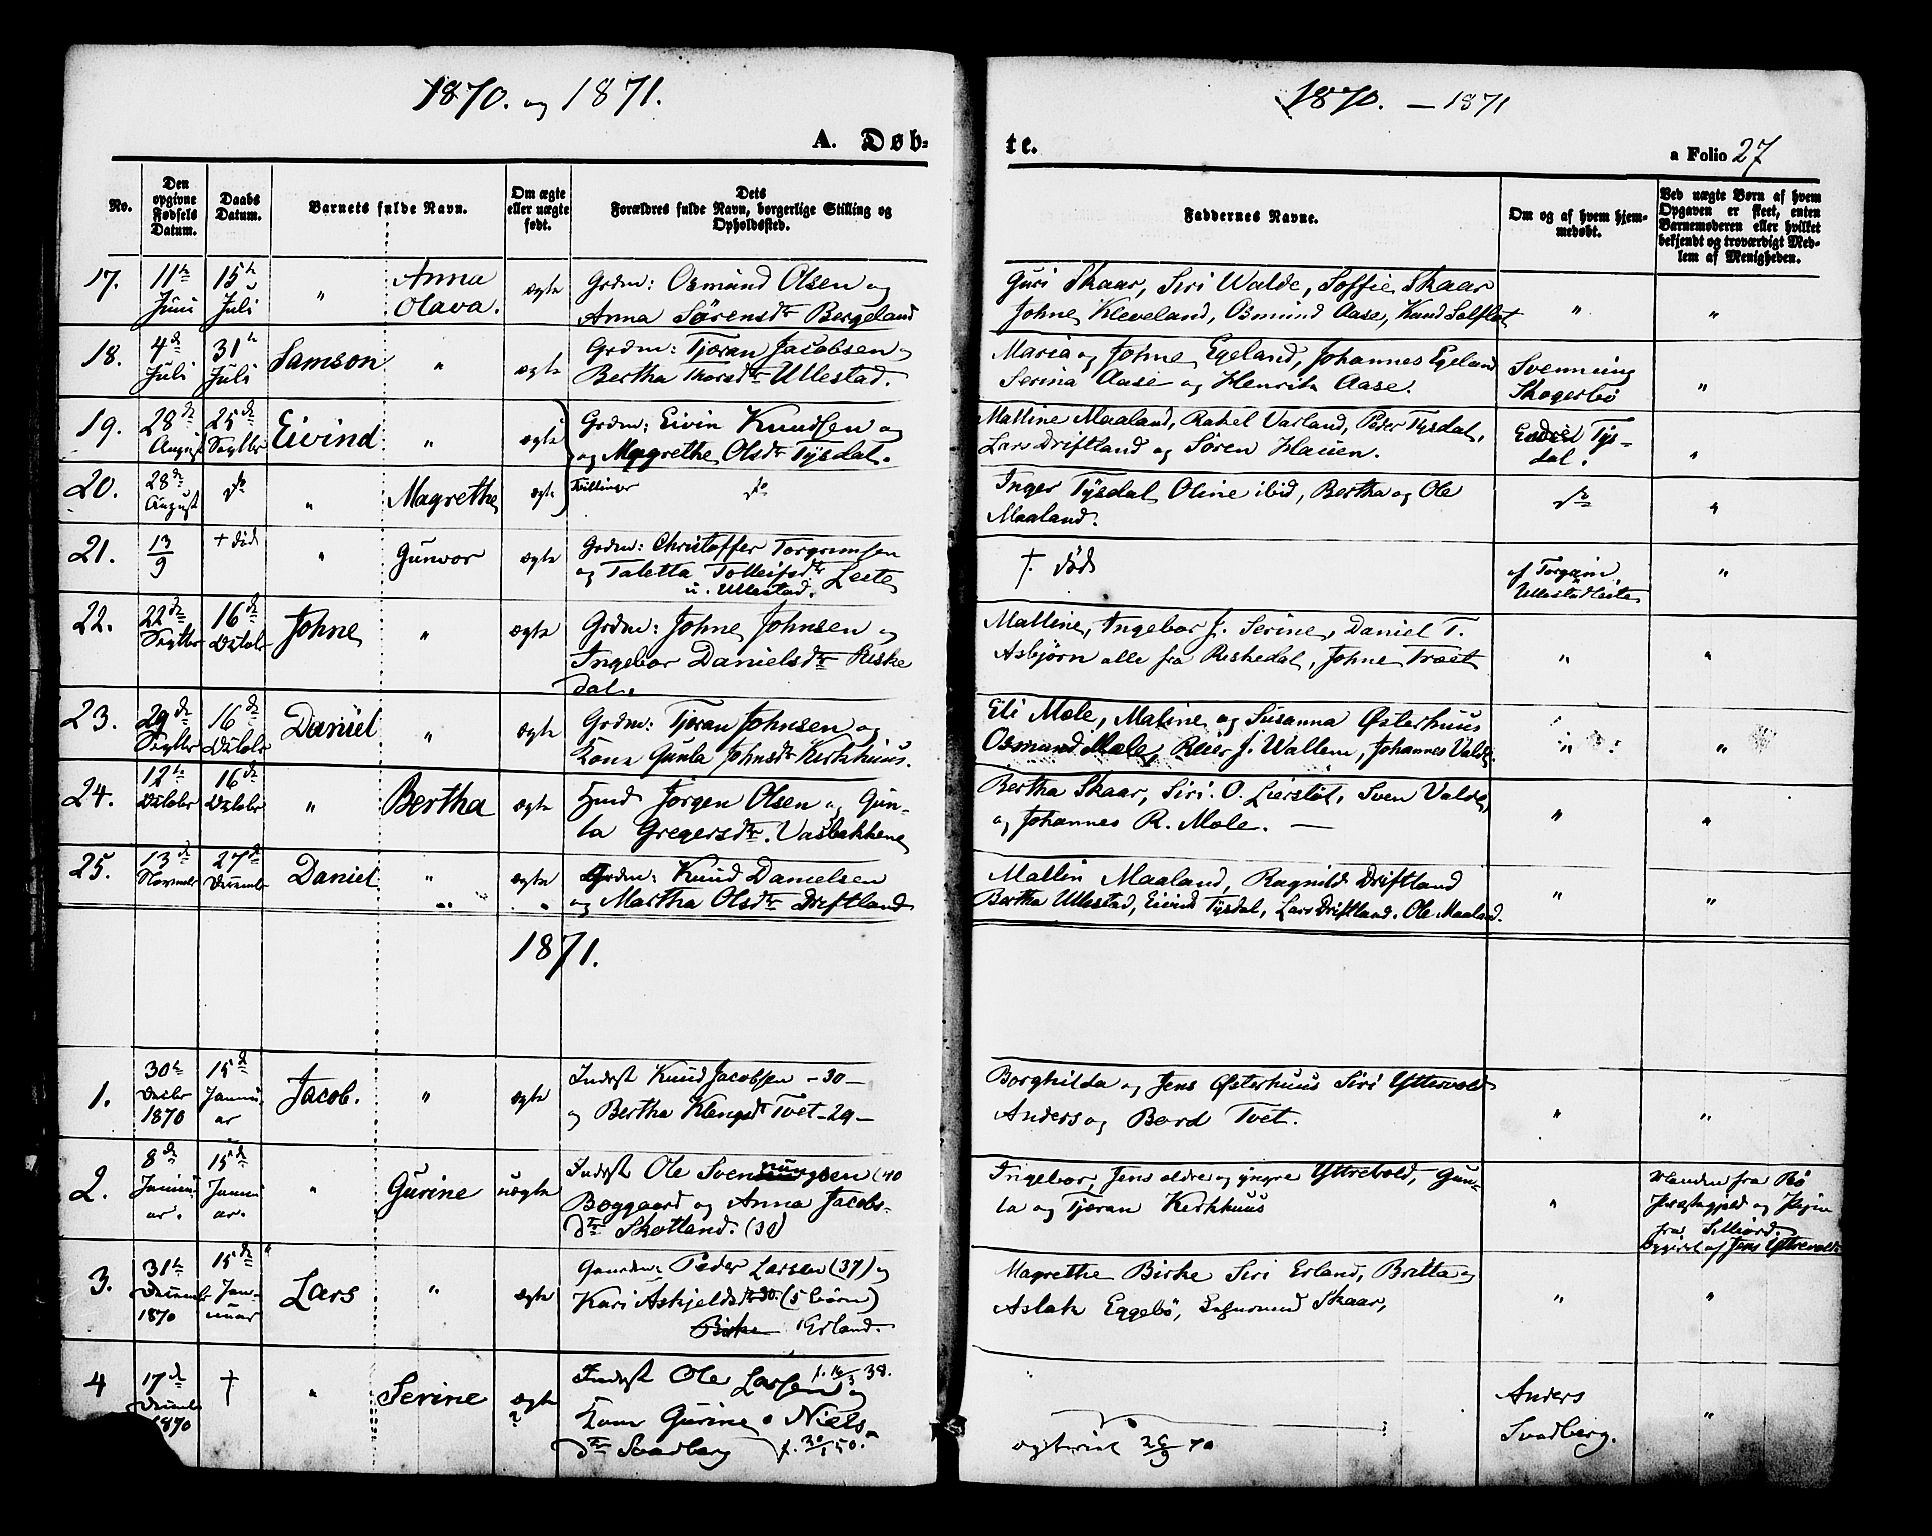 1870. og 1871.
A. Døb-
No.
Den opgivne Fødsels Datum.
Daabs Datum.
Barnets fulde Navn.
Om ægte eller uægte født.
Dets Forældres fulde Navn, borgerlige Stilling og Opholdssted.
17. 11te Juni 15de Juli " Anna Olava. ægte
Grdm: Osmund Olsen og
Anna Sørensdtr Bergeland
18. 4de Juli 31te Juli Samson " ægte
Grdm: Tjøran Jacobsen
Bertha Thorsdtr Ullestad.
19. 28de August 25de Septbr Eivind " ægte
Grdm: Eivin Knudsen og
og Magrethe Olsdtr Tysdal.
20. 28de August do " Magrethe ægte
Tvillinger do
21. 13/9 + død " Gunvor ægte
Grdm: Christoffer Torgrimsen
og Taletta Tolleifsdtr Leete
u. Ullestad.
22. 22de Septbr 16de Octobr Johne " ægte
Grdm: Johne Johnsen og
Ingebor Danielsdtr Reske
dal.
23. 29de Septbr 16de Octobr Daniel " ægte
Grdm: Tjøran Johnsen og
Kone Gunla Johnsdtr Kirkhuus.
24. 12te Octobr 16de Octobr " Bertha ægte
Huusm Jørgen Olsen og Gun-
la Gregersdtr. Vasbakkene
25. 13de Novembr 27de Decembr Daniel " ægte
Grdm: Knud Danielsen
og Martha Olsdtr Driftland
1871.
1. 30te Decbr 1870 15de Januar Jacob. " ægte
Inderst Knud Jacobsen -30-
og Bertha Klengsdtr Tvet -29-
2. 8de Januar. 15de Januar. " Gurine uægte
Inderst Ole Svenningsen (40
Boggaard og Anna Jacobs-
dtr Skotland. (30)
3. 31te Decembr 1870 15de Januar Lars " ægte
Gaardm: Peder Larsen (37) og
Kari Askjeldsdtr 30. (5 børn)
Birke Erland.
4 17de Decembr 1870 † " Serine ægte
Inderst Ole Larsen og
Kone Gurine Niels-
dtr Svadberg f. 30/1 50.
1870. — 1871
te.
a Folio 27
Faddernes Navne.
Om og af hvem hjemmedøbt.
Ved uægte Børn af hvem Opgaven er skeet, enten Barnemoderen eller hvilket bekjendt og troværdigt Medlem af Menigheden.
Guri Skaar, Siri Walde, Soffie Skaar
Johne Kleveland, Osmund Aase, Knud Solfløt " "
Maria og Johne Egeland, Johannes Egeland
Serina Aase og Henrik Aase.
Svenning
Skogerbø "
Malline Maaland, Rakel Varland, Peder Tysdal,
Lars Driftland og Søren Hauen.
Endre Tys-
dal. "
Inger Tysdal Oline ibid, Bertha og Ole
Maaland. do "
†. død
af Torgrim
Ullestadleite "
Malline, Ingebor J. Serine, Daniel T.
Asbjørn alle fra Reskedal, Johne Træet " "
Eli Mæle, Maline og Susanna Østerhuus
Osmund Mæle, Reier J. Wallem, Johannes Valde. " "
Bertha Skaar, Siri. O. Lierstøl, Sven Valde,
og Johannes R. Mæle. — " "
Mallin Maaland, Ragnild Driftland
Bertha Ullestad, Eivind Tysdal, Lars Driftland. Ole Maaland. " "
Borghilda og Jens Østerhuus Siri Yttrevold
Anders og Bord Tvet. " "
Ingebor, Jens eldre og yngre Yttrebold, Gun-
la og Tjøran Kirkhuus "
Manden fra Bø
Præstegjeld og Pigen
fra
Opgivet af Jens Yttrevold
Magrethe Birke Siri Erland, Britta og
Aslak Eggebø, Sigurmund Skaar, " "
Anders
Svadberg. "
ægteviet 26/9 70